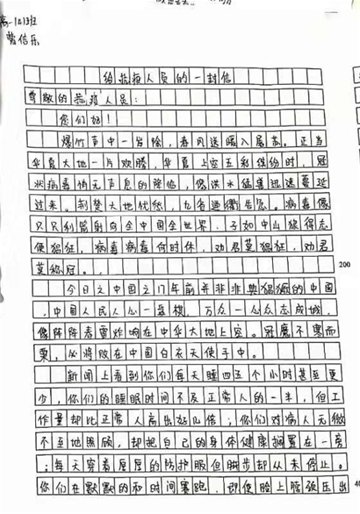 高一1213班
给抗疫人员的一封信
尊敬的抗疫人员:
你们好!
爆竹声中一岁除,春风送暖入屠苏。正当
华夏大地一片欢腾,华夏上空五彩缤纷时,冠
状病毒悄无声息的降临,像洪水猛兽迅速蔓延
过来。荆楚大地优愁,九省通衢告急。病毒像
只只利箭射向全中国全世界。子如中山狼得志
便猖狂,病毒病毒何时休,劝君莫猖狂,劝君
莫称冠。
200
今日之中国之17年前并非非典猖獗的中国
,中国人民人心一盘棋,万众一心众志成城,
像阵阵春雷炸响在中华大地上空。冠魔不寒而
栗,必将败在中国白衣天使手中。
新闻上看到你们每天睡四五个小时甚至更
少,你们的睡眠时间不及正常人的一半,但工
作量却比正常人高出好几倍;你们对病人无微
不至地照顾,却把自己的身体健康搁置在一旁
;每天穿着厚厚的防护服但脚步却从未停止。
你们在默默的和时间赛跑,即使脸上勒痕压出